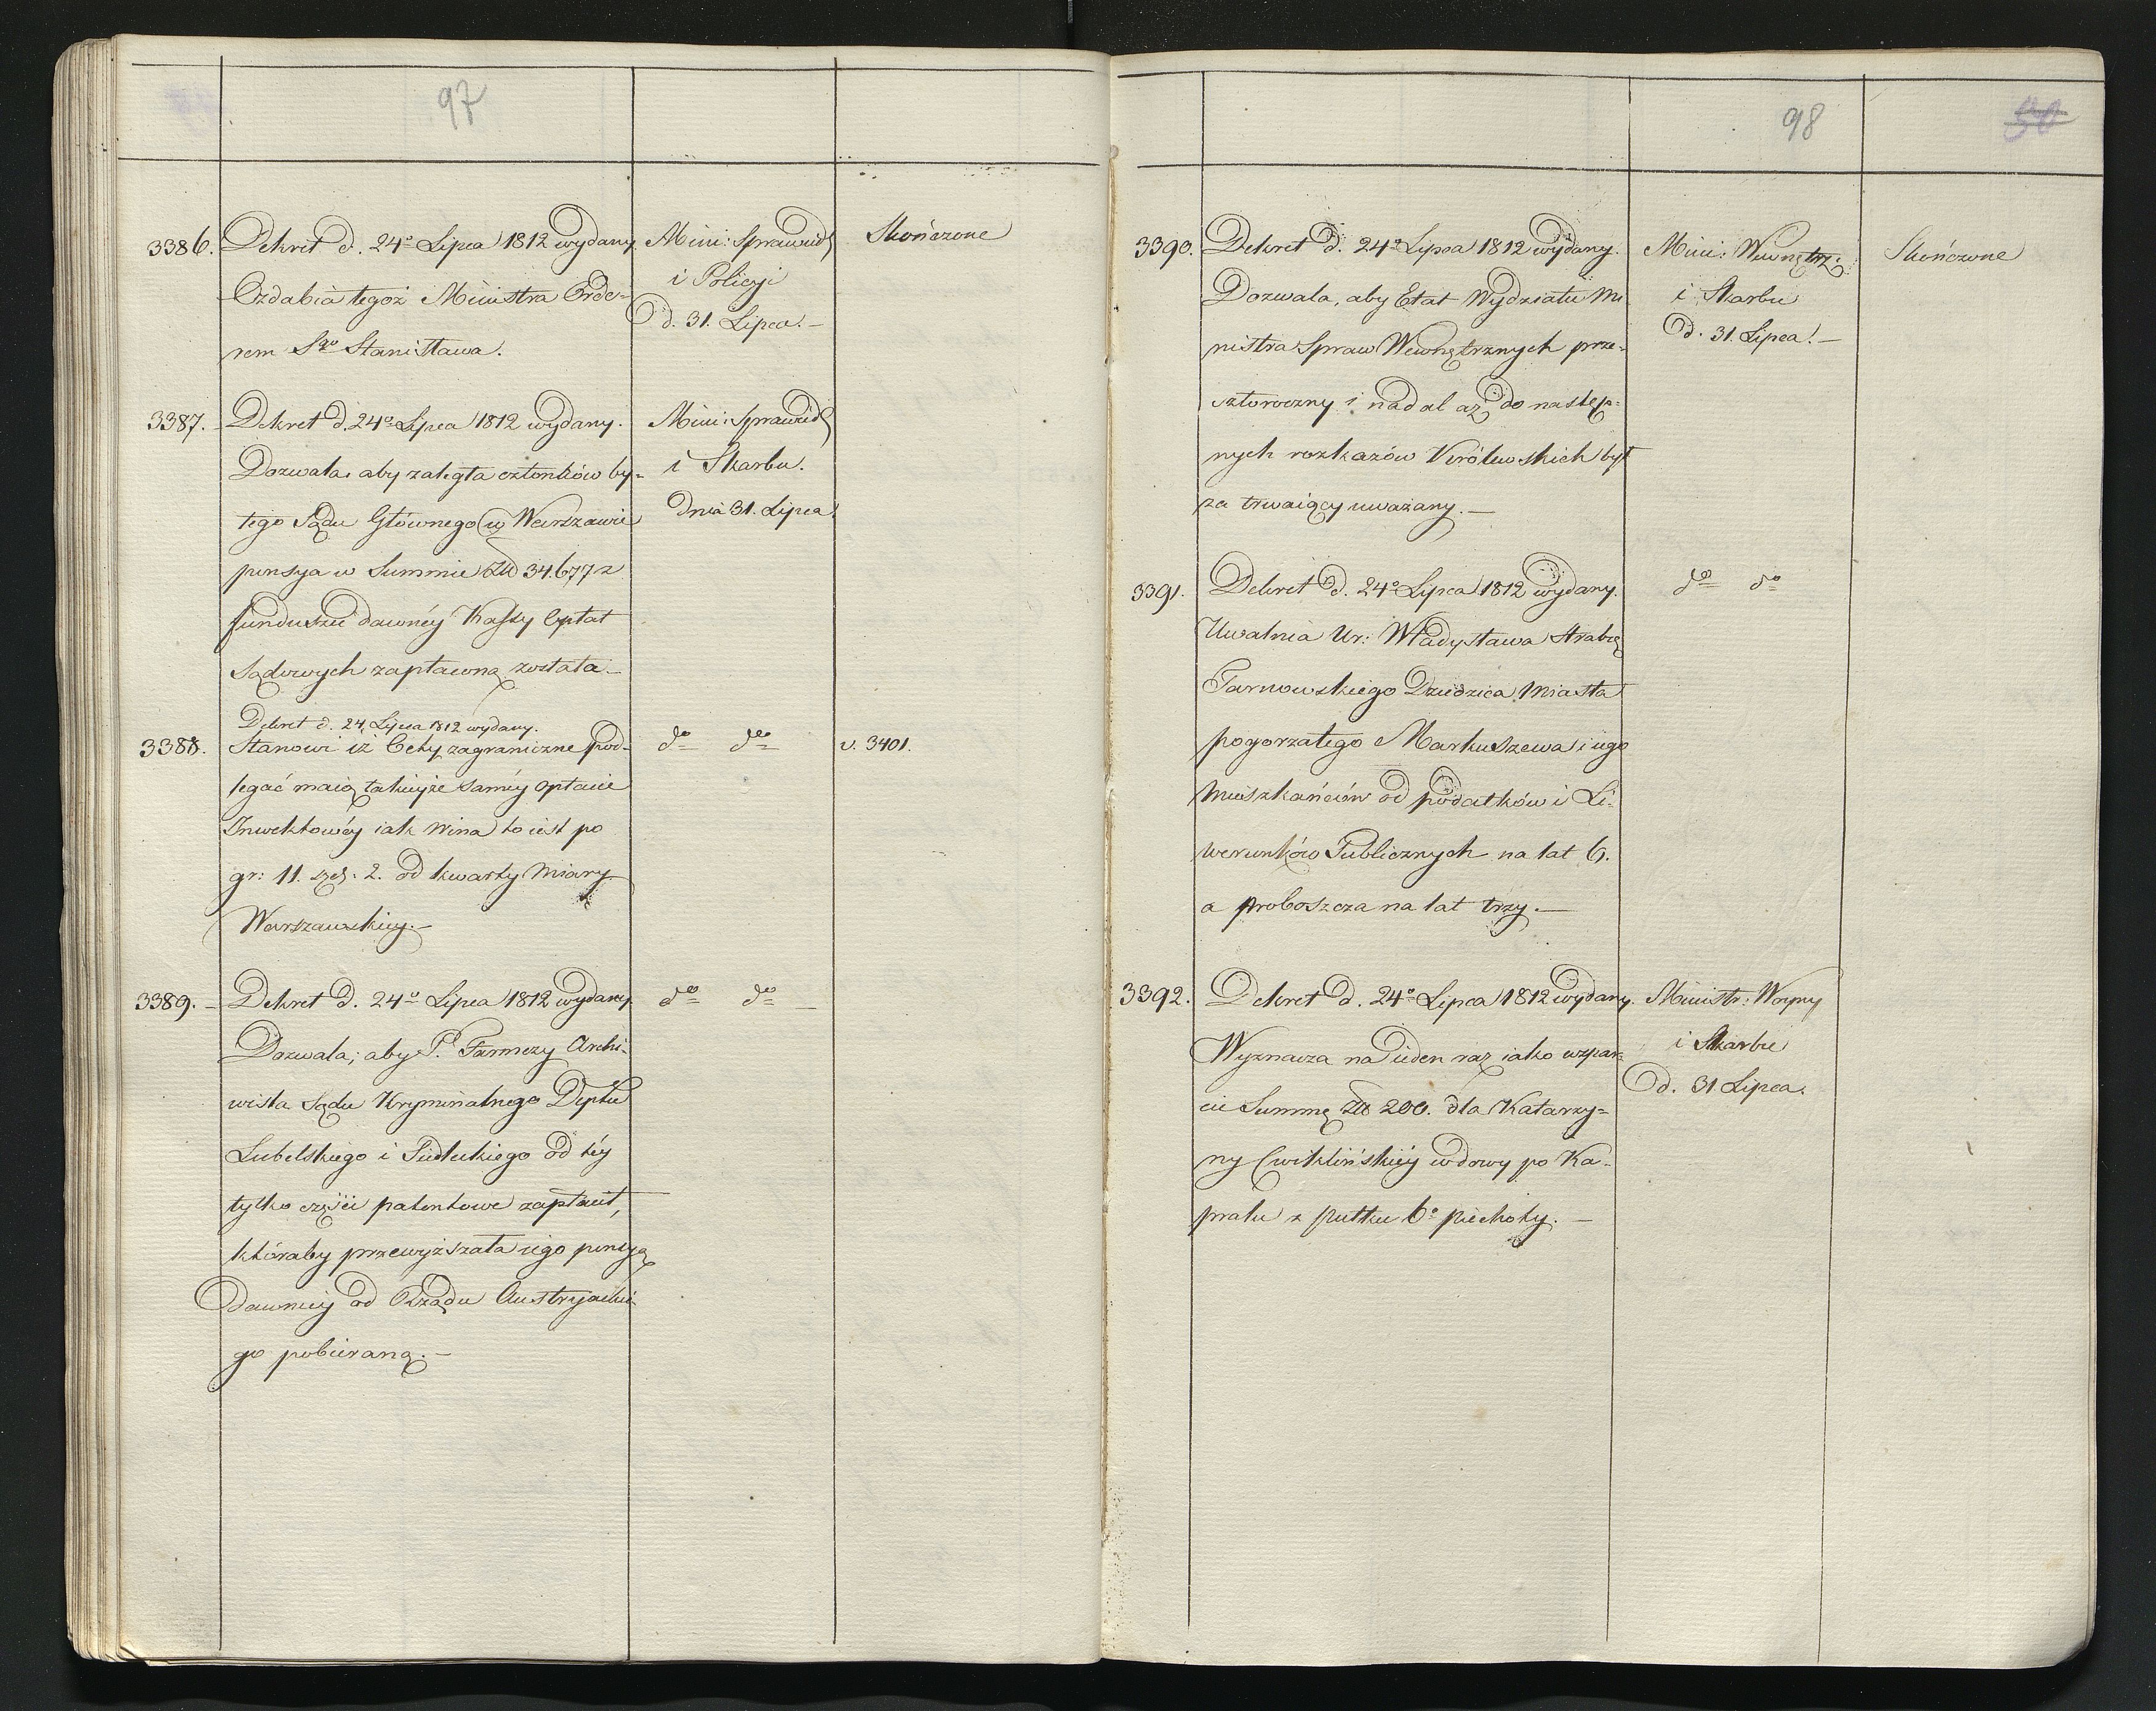 97
3386. Dekret d. 24º Lipca 1812 wydany.
Ozdabia tegoż Ministra Orde-
rem Sgo Stanisława.
Mini: Sprawied
i Policyi
d. 31. Lipca. —
Skończone
3387. — Dekret d. 24º Lipca 1812 wydany.
Dozwala, aby zaległa członków by-
łego Sądu Głównego w Warszawie
pensya w Summie Złł 34.677 z
funduszu dawnéy Kassy Opłat
Sądowych zapłaconą została —
Mini: Sprawied
i Skarbu.
Dnia 31. Lipca.
Dekret d. 24 Lipca 1812 wydany.
3388. Stanowi iż Octy zagraniczne pod-
legać maią takiéyże saméy opłacie
Inwektowéy iak wina to iest po
gr: 11. szel. 2. od kwarty Miary
Warszawskiey. —
do do
v. 3401.
3389. — Dekret d. 24º Lipca 1812 wydany.
Dozwala, aby P. Archi-
wista Sądu Kryminalnego Deptu
Lubelskiego i Siedleckiego od téy
tylko części patentowe zapłacił,
któraby przewyższała iego pensyą
dawniey od Rządu Austryackie-
go pobieraną. —
do do —
98
50
3390. Dekret d. 24º Lipca 1812 wydany.
Dozwala, aby Etat Wydziału Mi
nistra Spraw Wewnętrznych prze-
szłoroczny i nadal aż do następ-
nych rozkazów Królewskich był
za trwaiący uważany. —
Mini: Wewnętrz:
i Skarbu
d. 31. Lipca. —
Skończone
3391. Dekret d. 24º Lipca 1812 wydany.
Uwalnia Ur: Władysława Hrabię
Tarnowskiego Dziedzica Miasta
pogorzałego Markuszewa i iego
Mieszkańców od podatków i Li-
werunków Publicznych na lat 6.
a proboszcza na lat trzy. —
do do
3392. Dekret d. 24º Lipca 1812 wydany.
Wyznacza na ieden raz iako wspar-
cie Summę Złł 200. dla Katarzy-
ny Cwiklińskiéy wdowy po Ka-
pralu z pułku 6º piechoty. —
Ministr: Woyny
i Skarbu
d. 31 Lipca.